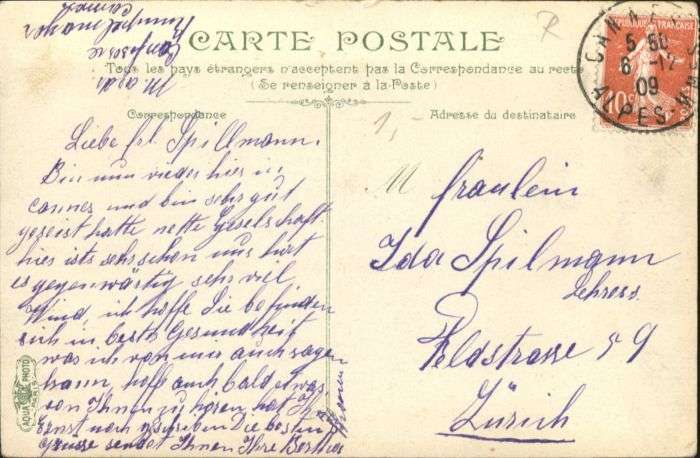 CARTE POSTALE
Tous les pays étrangers n'acceptent pas la Correspondance au recto
(Se renseigner à la Poste)
Correspondance
Adresse du destinataire
REPUBLIQUE FRANCAISE
10
CANNES
5 50
6 -12
09
ALPES-MMES
1,-
Liebe frl. Spillmann.
Bin nun wieder hier in
cannes und bin sehr gut
gereist hatte nette Geselschaft
hier ists sehr schön nur hirt
es gegenwärtig sehr viel
Wind, ich hoffe Sie befinden
sich in beste Gesundheit
was ich von mir auch sagen
kann, hoffe auch bald etwas
von Ihnen zu hören, hat Ihr
Ernst noch geschrieben die besten
Grüsse sendet Ihnen Ihre Bertha
M
fräulein
Ida Spilmann
Lehress.
Feldstrasse 59
Zürich
AQUA PHOTO
PARIS